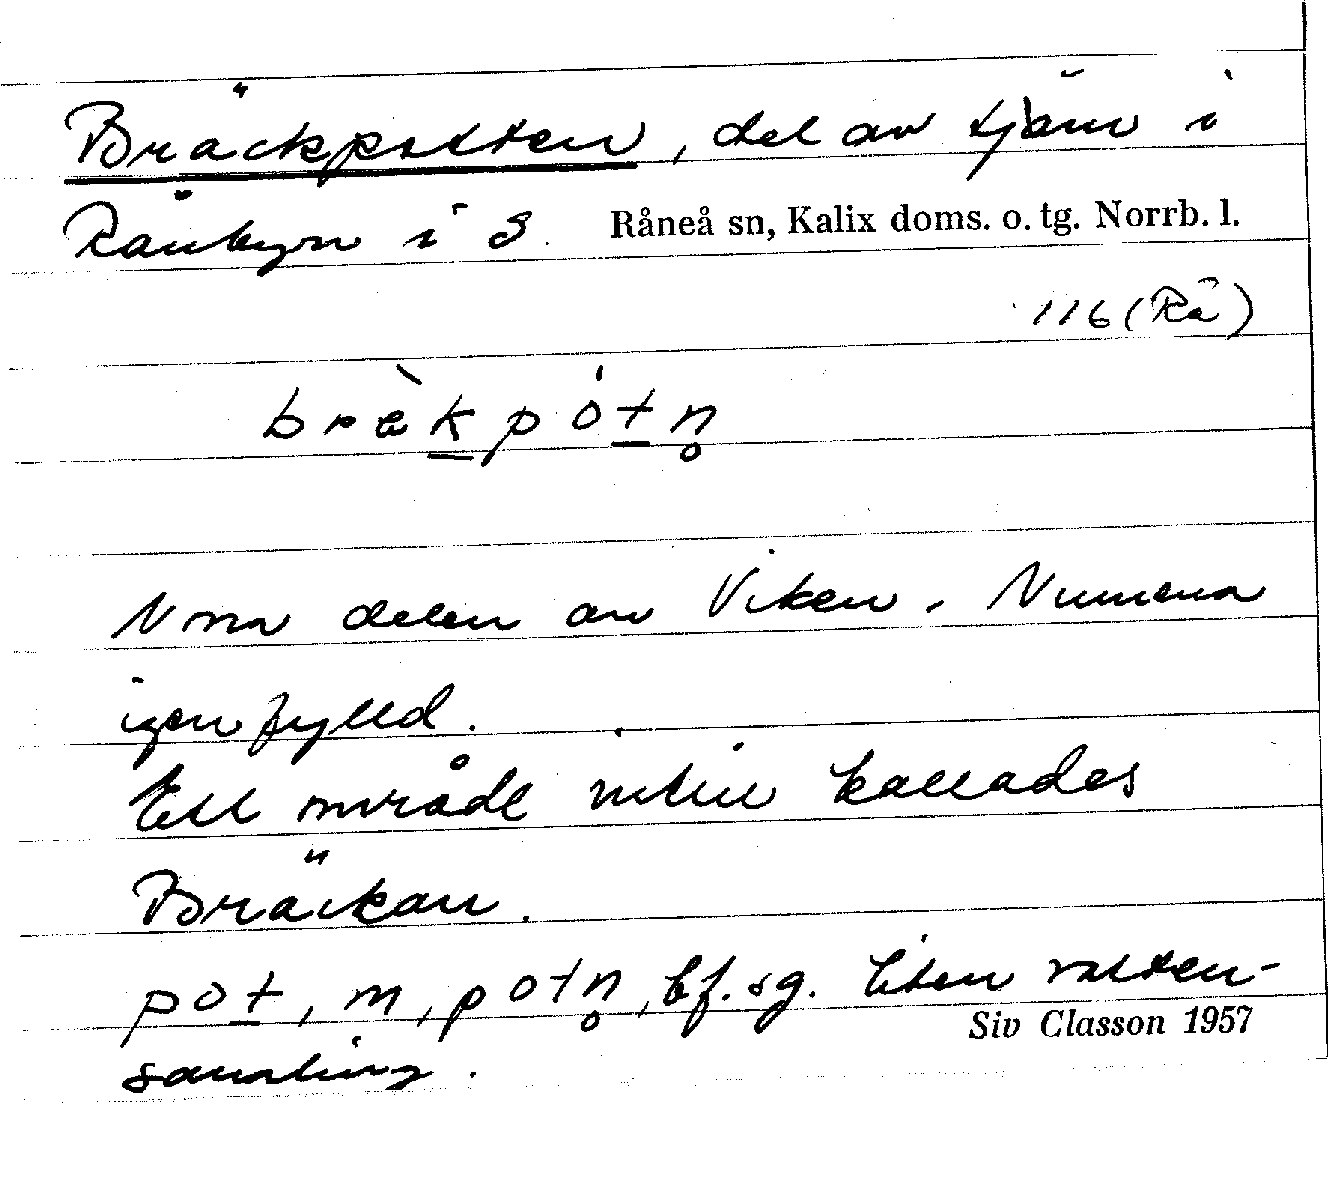 Bräckpotten, del av tjärn i
Rånbyn i S. Råneå sn, Kalix doms. o. tg. Norrb. l.
116 (Rå)
brὲk̲pót̲n̥
Norra delen av Viken. Numera
igenfylld.
Ett område intill kallades
Bräckan.
pot̲, m, potn̥, bf. sg. liten vatten-
Siv Classon 1957
samling.